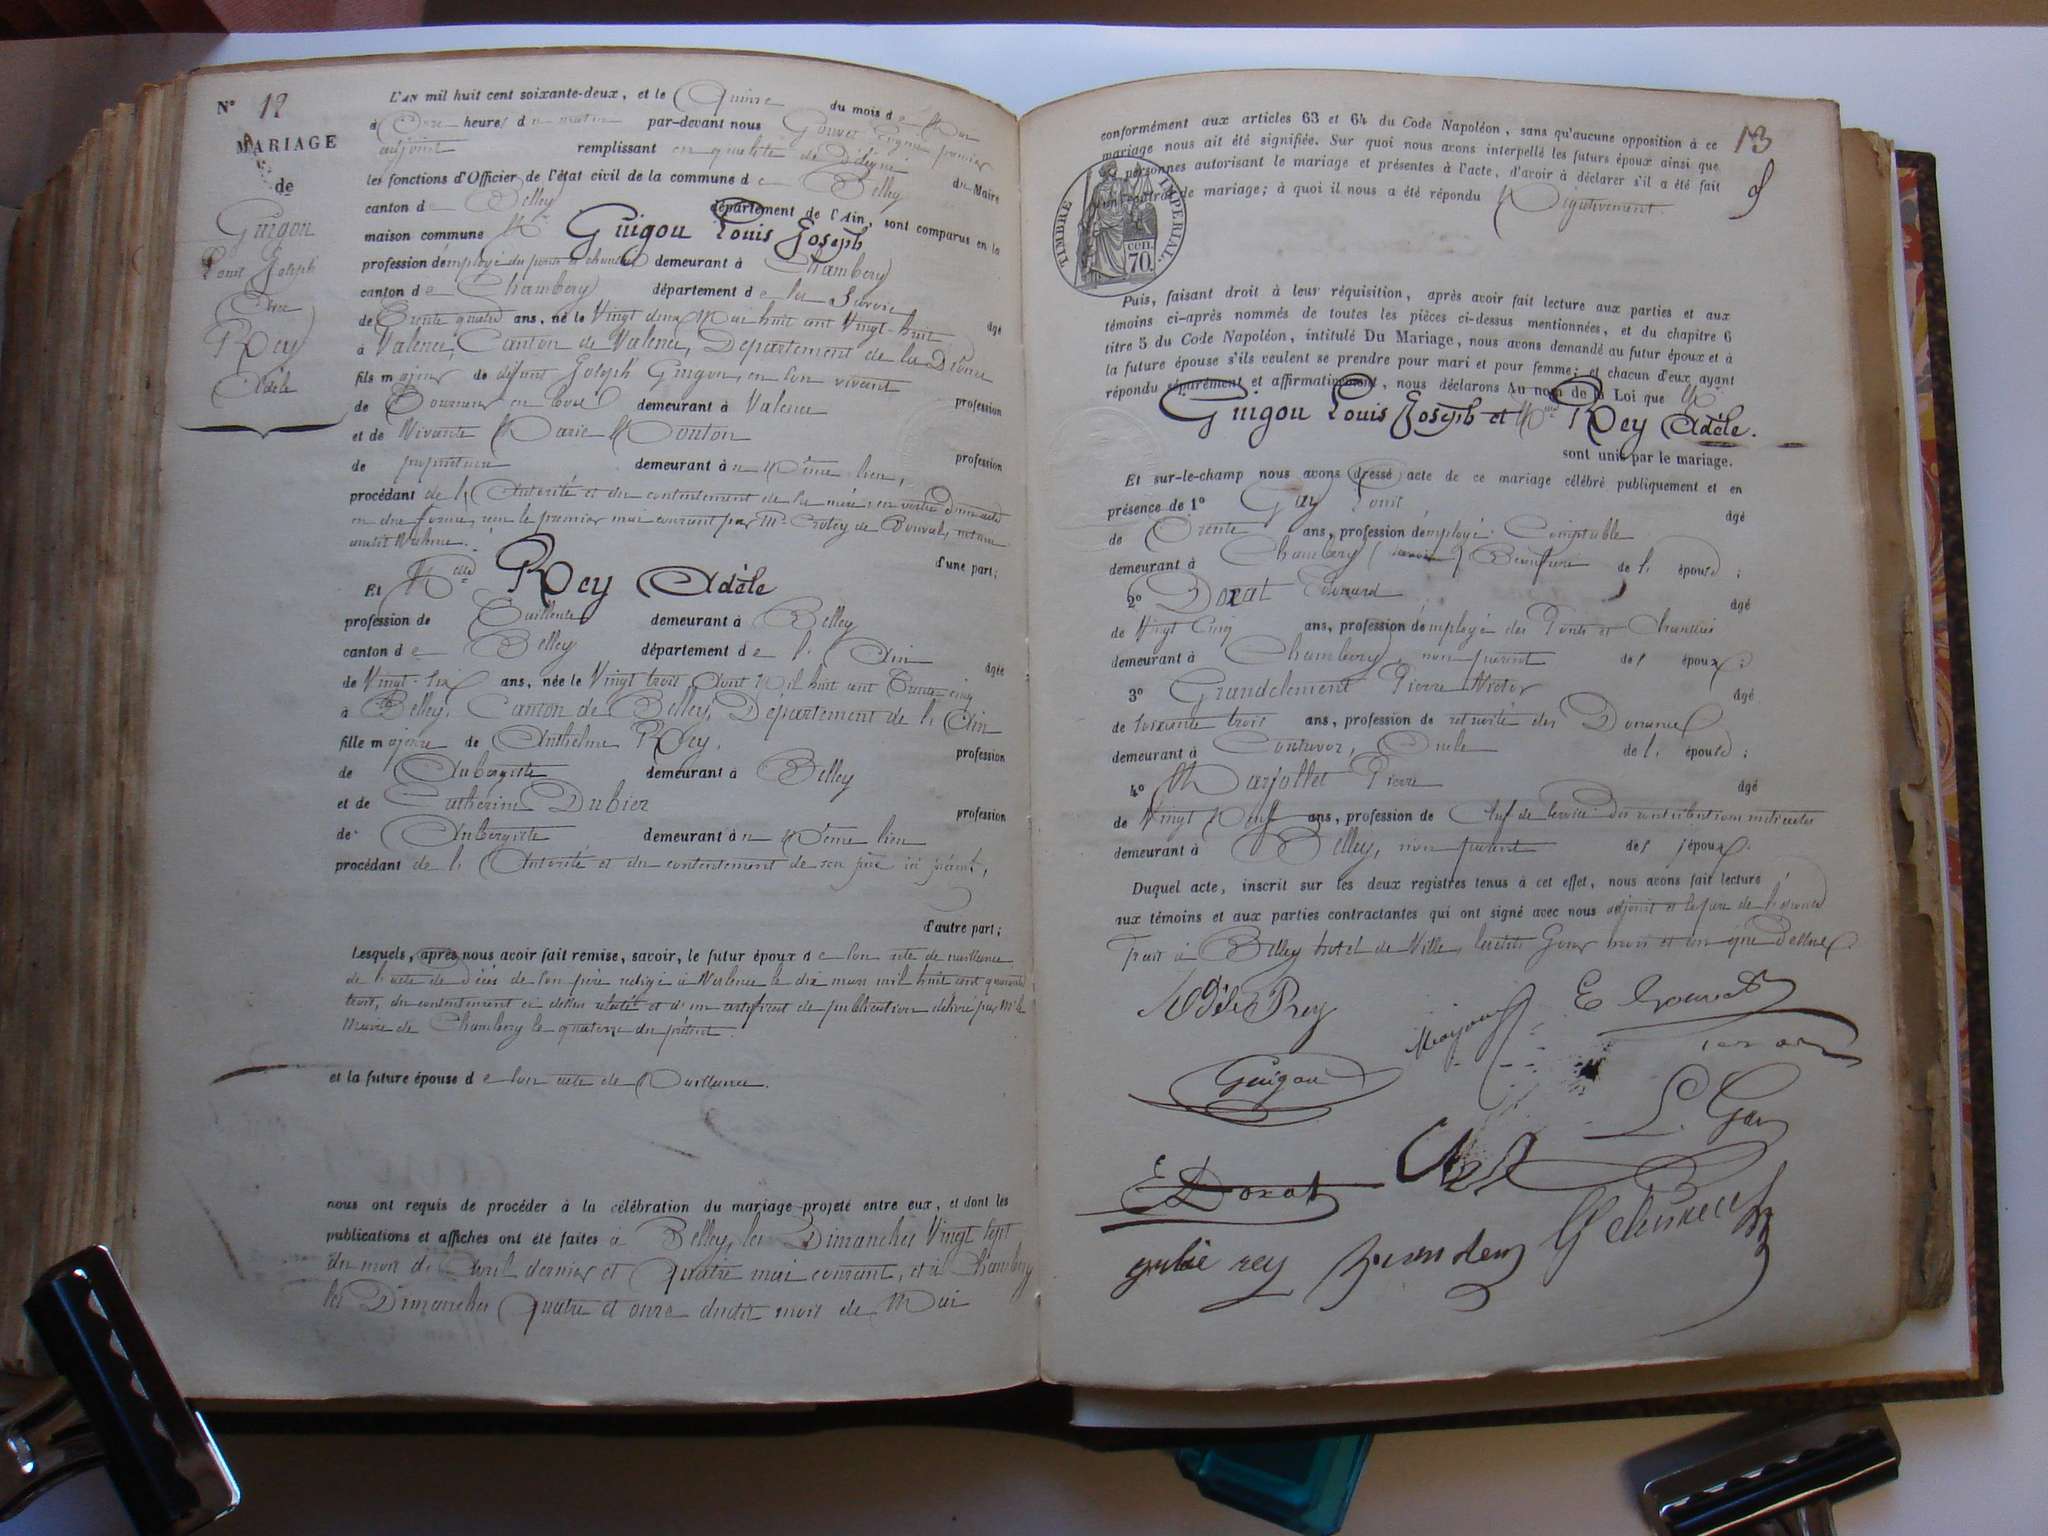 N° 12
MARIAGE
de
Guigou
Louis Joseph
Avec
Rey
Adèle
L'AN mil huit cent soixante-deux, et le Quinze du mois de Mai
à Onze heures du matin par-devant nous Gouvet Eugène premier
adjoint remplissant en qualité de Délégué du Maire
les fonctions d'Officier de l'état civil de la commune de Belley
canton de Belley département de l'Ain, sont comparus en la
maison commune Mr Guigou Louis Joseph
profession d'employé du ponts et chaussées demeurant à Chambéry
canton de Chambéry département de la Savoie âgé
de Trente quatre ans, né le Vingt deux Mai huit cent Vingt-huit
à Valence, Canton de Valence, Département de la Drôme
fils majeur de défunt Joseph Guigou, en son vivant profession
de Tourneur en bois demeurant à Valence
et de Vivante Marie Mouton profession
de propriétaire demeurant au Même lieu,
procédant de l'Autorité et du contentement de sa mère, en vertu d'un acte
en due forme, reçu le premier mai courant par Me de Bonval, notaire
audit Valence.
d'une part;
Et Melle Rey Adèle
profession de Tailleuse demeurant à Belley
canton de Belley département de l'Ain âgée
de Vingt-six ans, née le Vingt trois Aout Mil huit cent Trente cinq
à Belley, Canton de Belley, Département de l'Ain
fille majeure de Anthelme Rey, profession
de Aubergiste demeurant à Belley
et de Catherine Dubiez profession
de Aubergiste demeurant au Même lieu
procédant de l'Autorité et du contentement de son père ici présent,
d'autre part;
Lesquels, après nous avoir fait remise, savoir, le futur époux de son acte de naissance
de l'acte de Décès de son père rédigé à Valence le dix mars mil huit cent quarante
trois, du contentement ci dessus relaté et d'un certificat de publication délivré par Mr le
Maire de Chambéry le quatorze du présent
et la future épouse de son acte de Naissance.
nous ont requis de procéder à la célébration du mariage projeté entre eux, et dont les
publications et affiches ont été faites à Belley, les Dimanches Vingt sept
du mois d'Avril dernier et Quatre mai courant, et à Chambéry
les Dimanches Quatre et onze dudit mois de Mai
13
conformément aux articles 63 et 64 du Code Napoléon, sans qu'aucune opposition à ce
mariage nous ait été signifiée. Sur quoi nous avons interpellé les futurs époux ainsi que
personnes autorisant le mariage et présentes à l'acte, d'avoir à déclarer s'il a été fait
un contrat de mariage; à quoi il nous a été répondu Négativement.
TIMBRE IMPERIAL.
cen.
70.
Puis, faisant droit à leur réquisition, après avoir fait lecture aux parties et aux
témoins ci-après nommés de toutes les pièces ci-dessus mentionnées, et du chapitre 6
titre 5 du Code Napoléon, intitulé Du Mariage, nous avons demandé au futur époux et à
la future épouse s'ils veulent se prendre pour mari et pour femme; et chacun d'eux ayant
répondu séparément et affirmativement, nous déclarons Au nom de la Loi que Mr
Guigou Louis Joseph et Melle Rey Adèle.
sont unis par le mariage.
Et sur-le-champ nous avons dressé acte de ce mariage célébré publiquement et en
présence de 1° Gay Louis âgé
de Trente ans, profession d'employé Comptable
demeurant à Chambéry (Savoie) Beaufrère de l'épouse;
2° Doxat Edouard âgé
de Vingt Cinq ans, profession d'employé des Ponts et Chaussées
demeurant à Chambéry, non parent des époux;
3° Grandclement Pierre Victor âgé
de soixante trois ans, profession de retraité des Douanes
demeurant à Contrevoz, Oncle de l'épouse;
4° Marjollet Pierre âgé
de Vingt Neuf ans, profession de Chef de Service Des contributions indirectes
demeurant à Belley, non parent des époux.
Duquel acte, inscrit sur les deux registres tenus à cet effet, nous avons fait lecture
aux témoins et aux parties contractantes qui ont signé avec nous adjoint et le père de l'épouse
Fait à Belley hotel de Ville, lesdits Jour mois et an que Dessus
Adèle Rey
E Gouvet
Guigou
L. Gay
E Doxat
Rey
julie rey